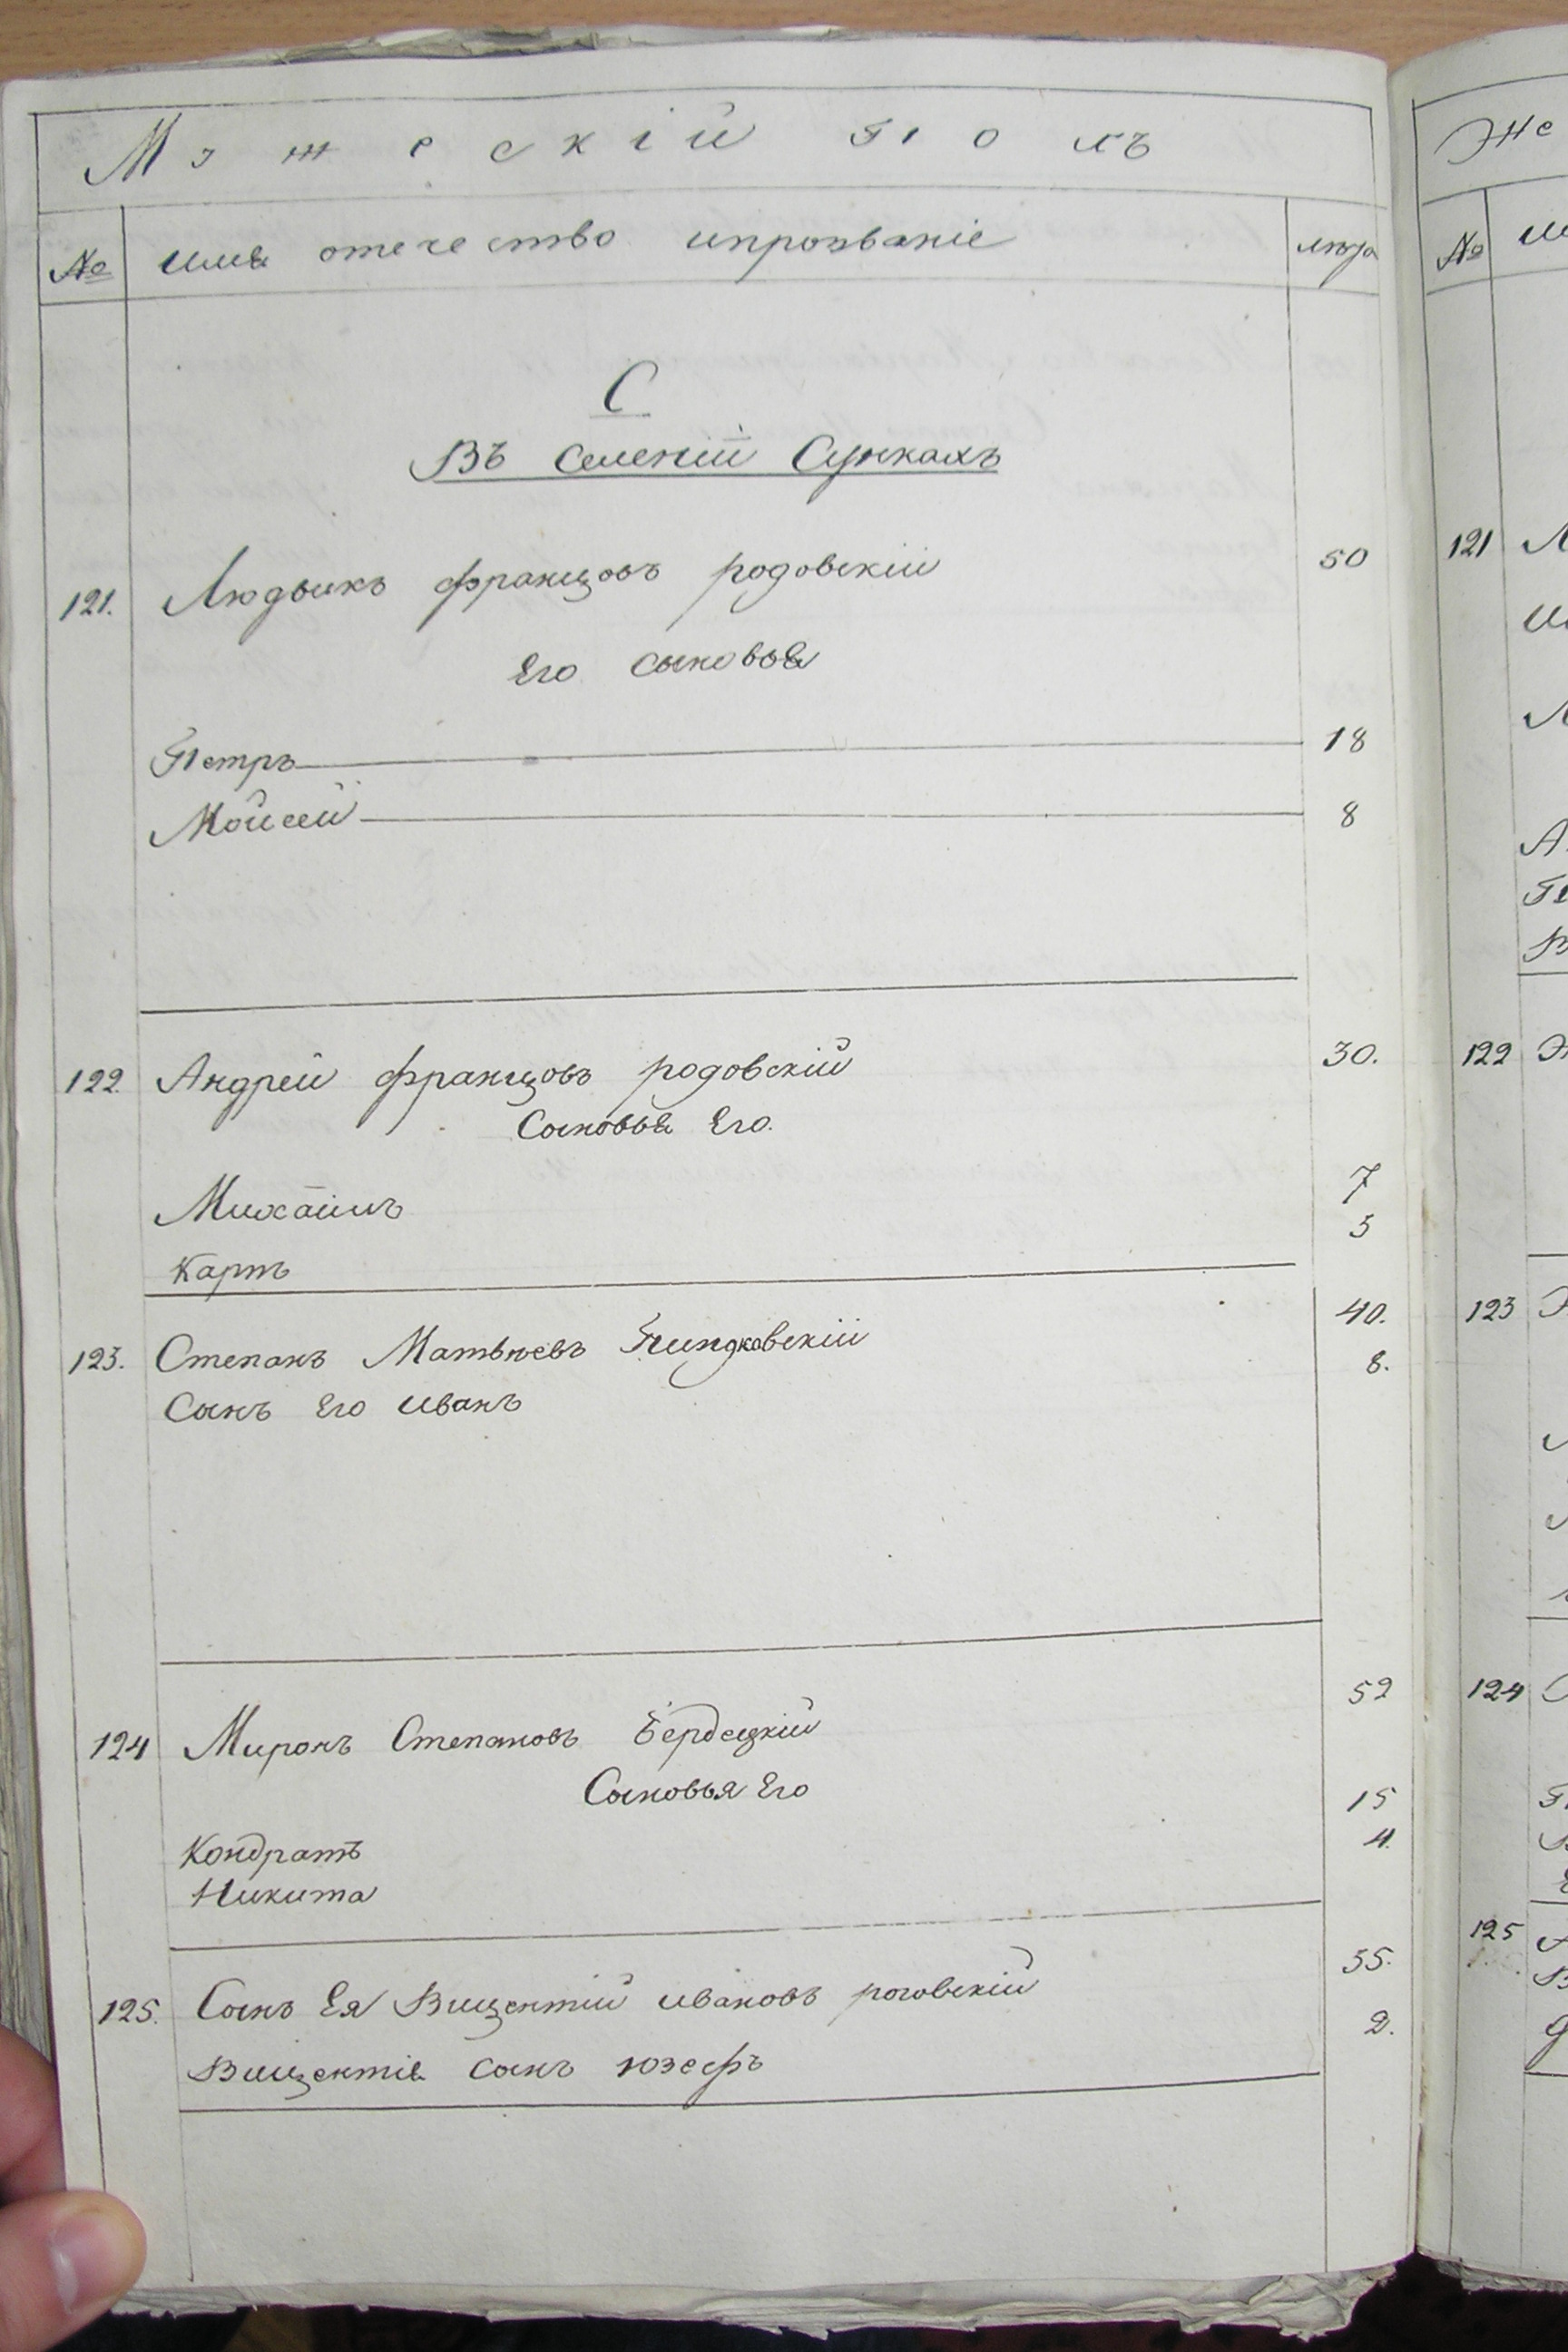 Мужескій полъ
№ имя отечество ипрозваніе лѣта
С
Въ Селеніи Сункахъ
121. Людвикъ францовъ родовскій 50
Его сыновья
Петръ 18
Мойсей 8
122. Андрей францовъ родовскій 30.
Сыновья Его.
Михаилъ 7
Карпъ 5
123. Степанъ Матвѣевъ 40.
Сынъ Его иванъ 8.
124 Миронъ Степановъ Бердецкій 52
Сыновья Его
Кондратъ 15
Никита 4.
125. Сынъ Ея Вицентій ивановъ роговскій 35.
Вицентія сынъ юзефъ 2.
Же
№
121
122
123
124
125